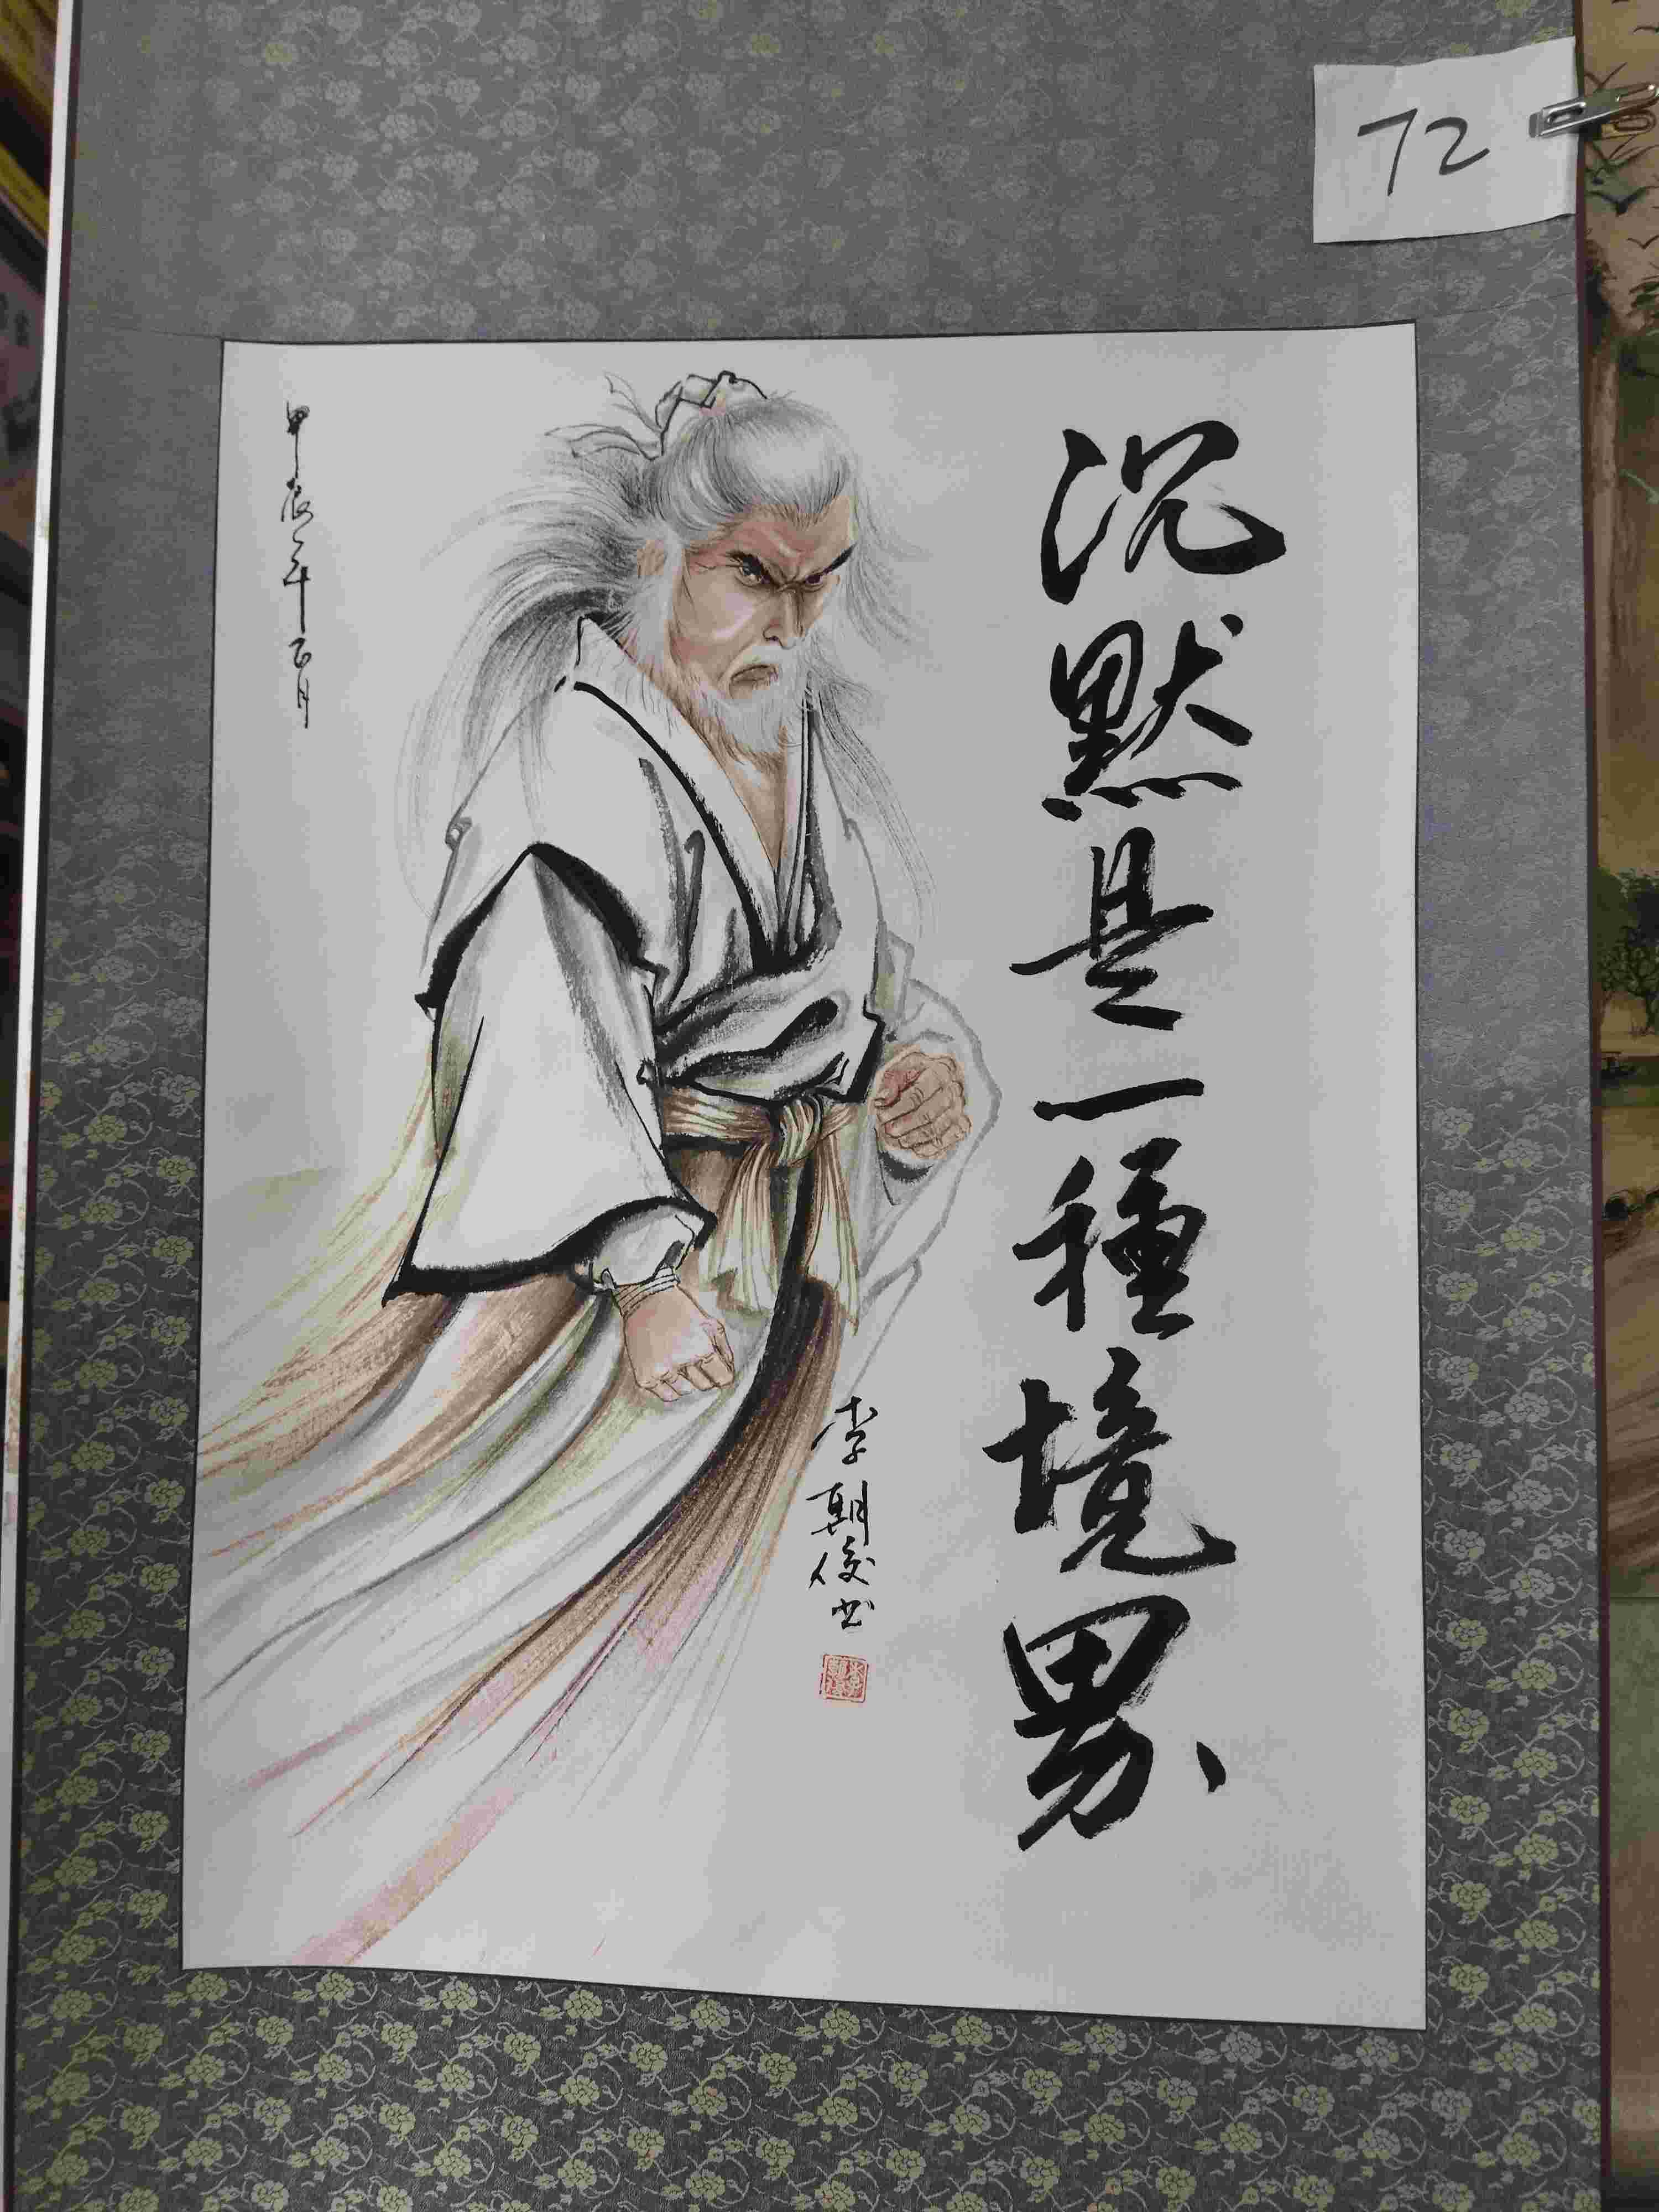 72
沉默是一種境界
李朝俊书
甲辰年正月